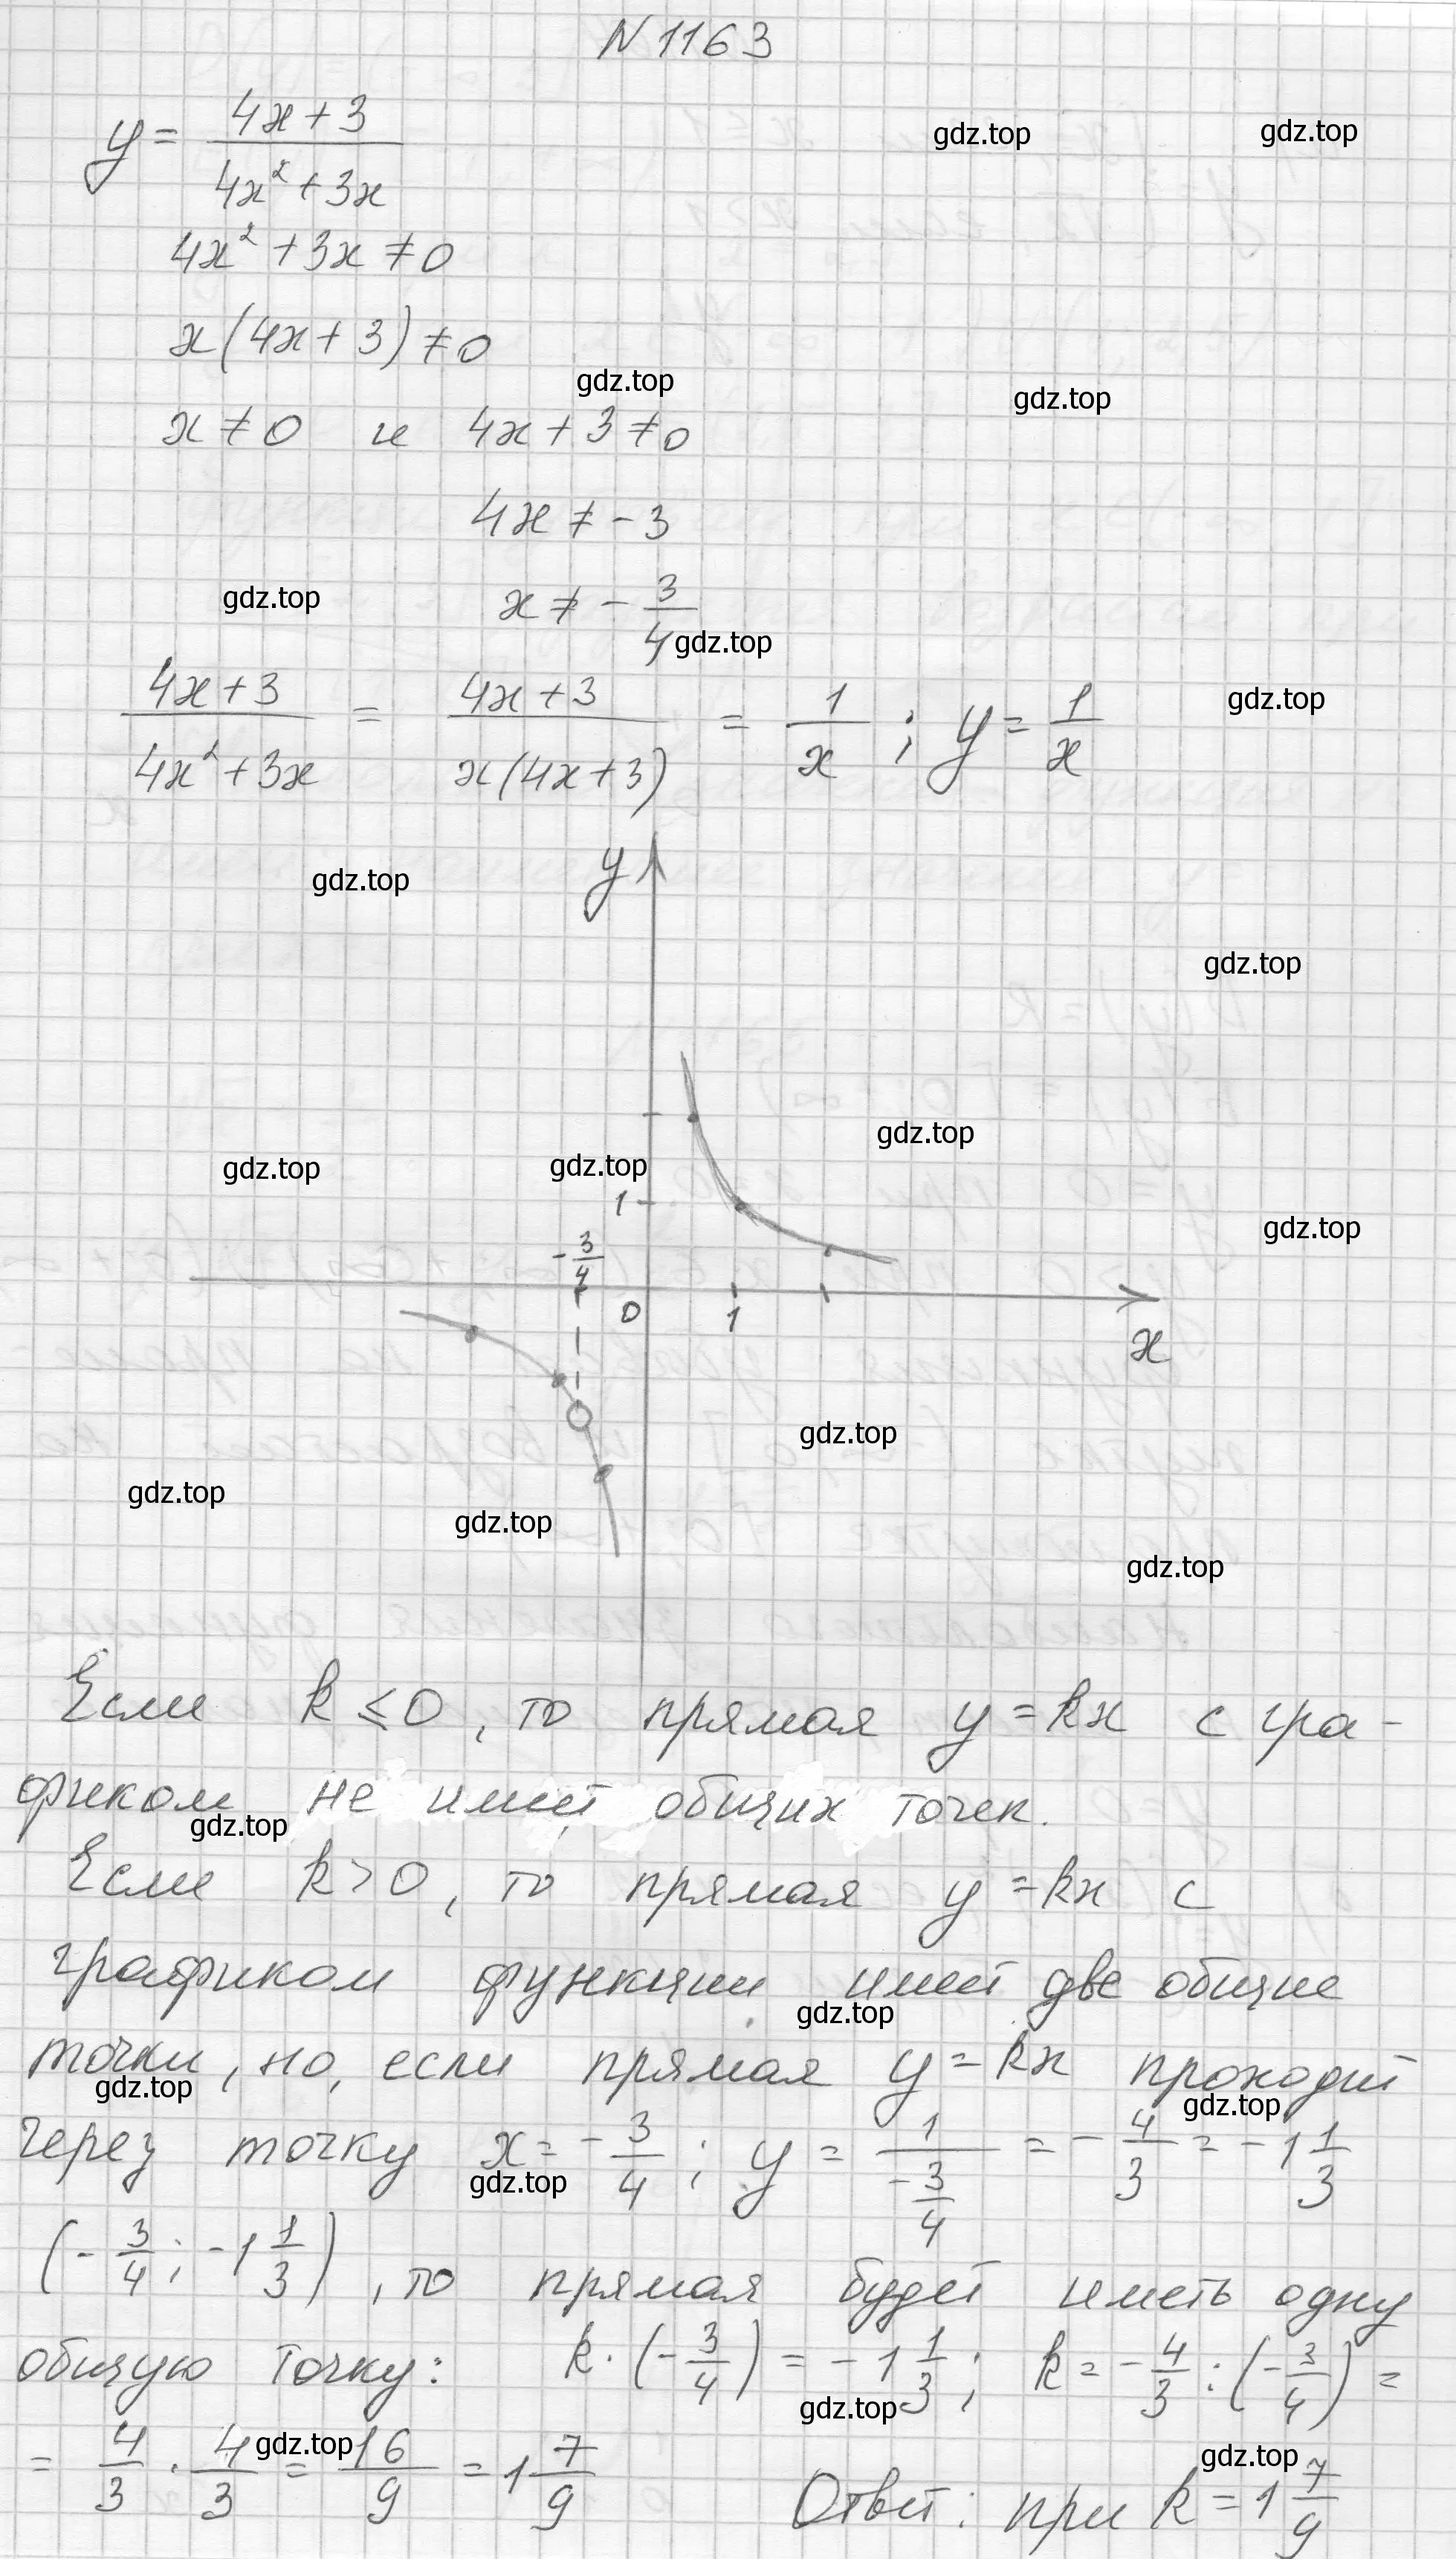 N 1163
y = (4x + 3)/(4x² + 3x)
gdz.top gdz.top
4x² + 3x ≠ 0
x(4x + 3) ≠ 0
gdz.top gdz.top
x ≠ 0 и 4x + 3 ≠ 0
4x ≠ -3
gdz.top
x ≠ - 3/4
gdz.top
(4x + 3)/(4x² + 3x) = (4x + 3)/(x(4x + 3)) = 1/x ; y = 1/x
gdz.top
y
gdz.top
gdz.top
gdz.top
gdz.top gdz.top
1
gdz.top
- 3/4
0 1
x
gdz.top
gdz.top
gdz.top
gdz.top
Если k ≤ 0, то прямая y = kx с гра-
фиком не имеет общих точек.
gdz.top
Если k > 0, то прямая y = kx с
графиком функции имеет две общие
gdz.top
точки, но, если прямая y = kx проходит
gdz.top gdz.top
через точку x = - 3/4 ; y = 1/(- 3/4) = - 4/3 = - 1 1/3
gdz.top
(- 3/4 ; - 1 1/3), то прямая будет иметь одну
общую точку: k · (- 3/4) = - 1 1/3 ; k = - 4/3 : (- 3/4) =
gdz.top
= 4/3 · 4/3 = 16/9 = 1 7/9 Ответ: при k = 1 7/9
gdz.top gdz.top